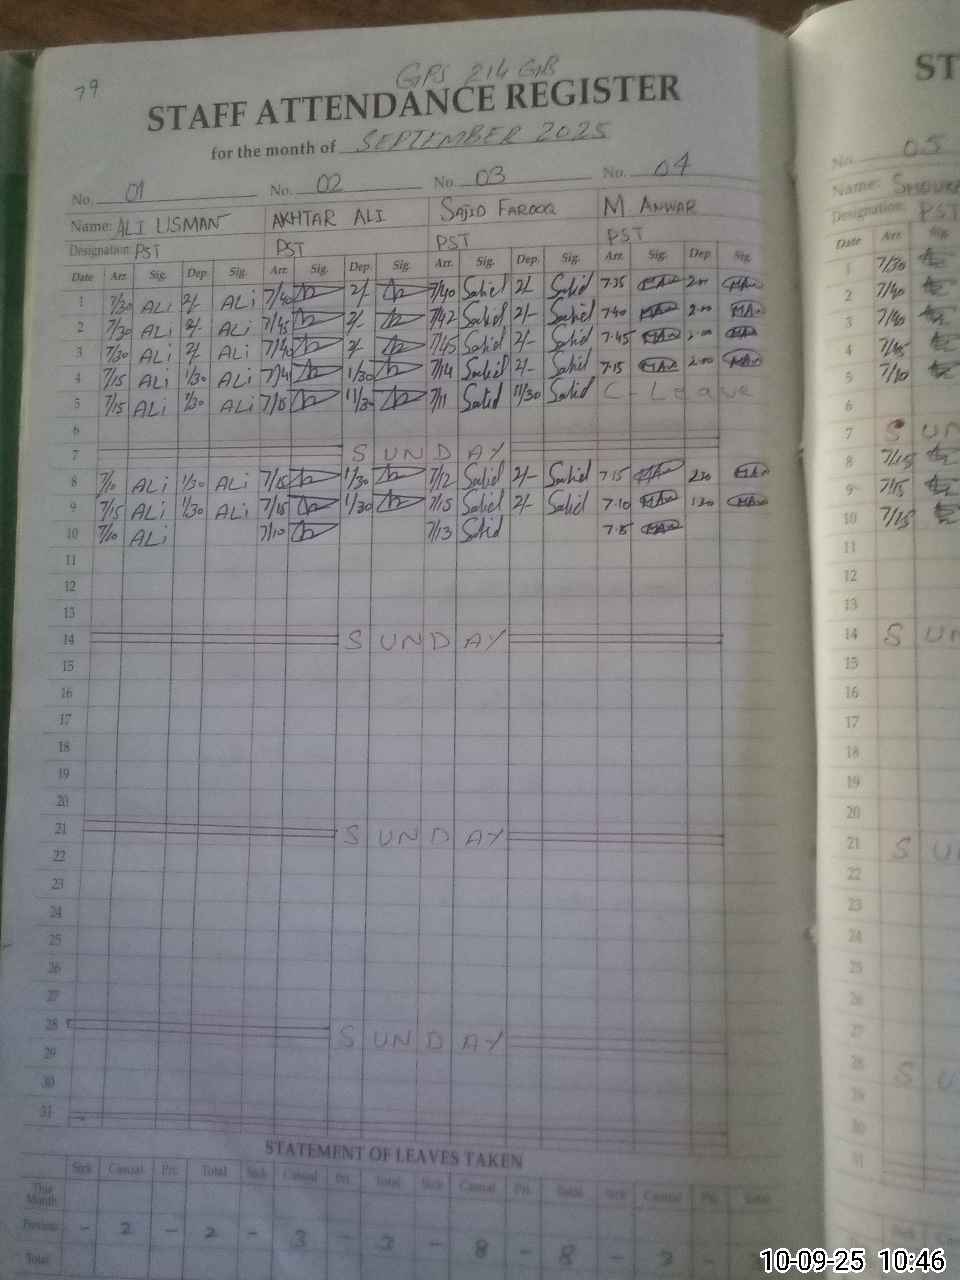 79
GPS 214 GB
STAFF ATTENDANCE REGISTER
for the month of SEPTEMBER 2025
No. 01 No. 02 No. 03 No. 04
Name: ALI USMAN AKHTAR ALI SAJID FAROOQ M. ANWAR
Designation: PST PST PST PST
Date Arr. Sig. Dep. Sig. Arr. Sig. Dep. Sig. Arr. Sig. Dep. Sig. Arr. Sig. Dep. Sig.
1 7/30 ALi 2/- ALi 7/40 2/- 7/40 Sahid 2/- Sahid 7-35 2-00
2 7/30 ALi 2/- ALi 7/45 2/- 7/42 Sahid 2/- Sahid 7-40 2-00
3 7/30 ALi 2/- ALi 7/40 2/- 7/45 Sahid 2/- Sahid 7-45 2-00
4 7/15 ALi 1/30 ALi 7/14 1/30 7/14 Sahid 2/- Sahid 7-15 2-00
5 7/15 ALi 1/30 ALi 7/15 11/30 7/11 Sahid 11/30 Sahid C-Leave
6
7 SUNDAY
8 7/10 ALi 1/30 ALi 7/15 1/30 7/12 Sahid 2/- Sahid 7-15
9 7/15 ALi 1/30 ALi 7/15 1/30 7/15 Sahid 2/- Sahid 7-10 1-30
10 7/10 ALi 7/10 7/13 Sahid
11
12
13
14 SUNDAY
15
16
17
18
19
20
21 SUNDAY
22
23
24
25
26
27
28 SUNDAY
29
30
31
STATEMENT OF LEAVES TAKEN
Sick Casual Pri. Total Sick Casual Pri. Total Sick Casual Pri. Total Sick Casual Pri. Total
This Month
Previous - 2 - 2 - 3 - 3 - 8 - 8 - 3 -
Total
ST
No. 05
Name:
Designation: PST
Date Arr. Sig.
1 7/30
2 7/40
3 7/40
4 7/45
5 7/10
6
7 SUN
8 7/15
9 7/15
10 7/15
11
12
13
14 SUN
15
16
17
18
19
20
21 SU
22
23
24
25
26
27
28 SU
29
30
31
10-09-25 10:46